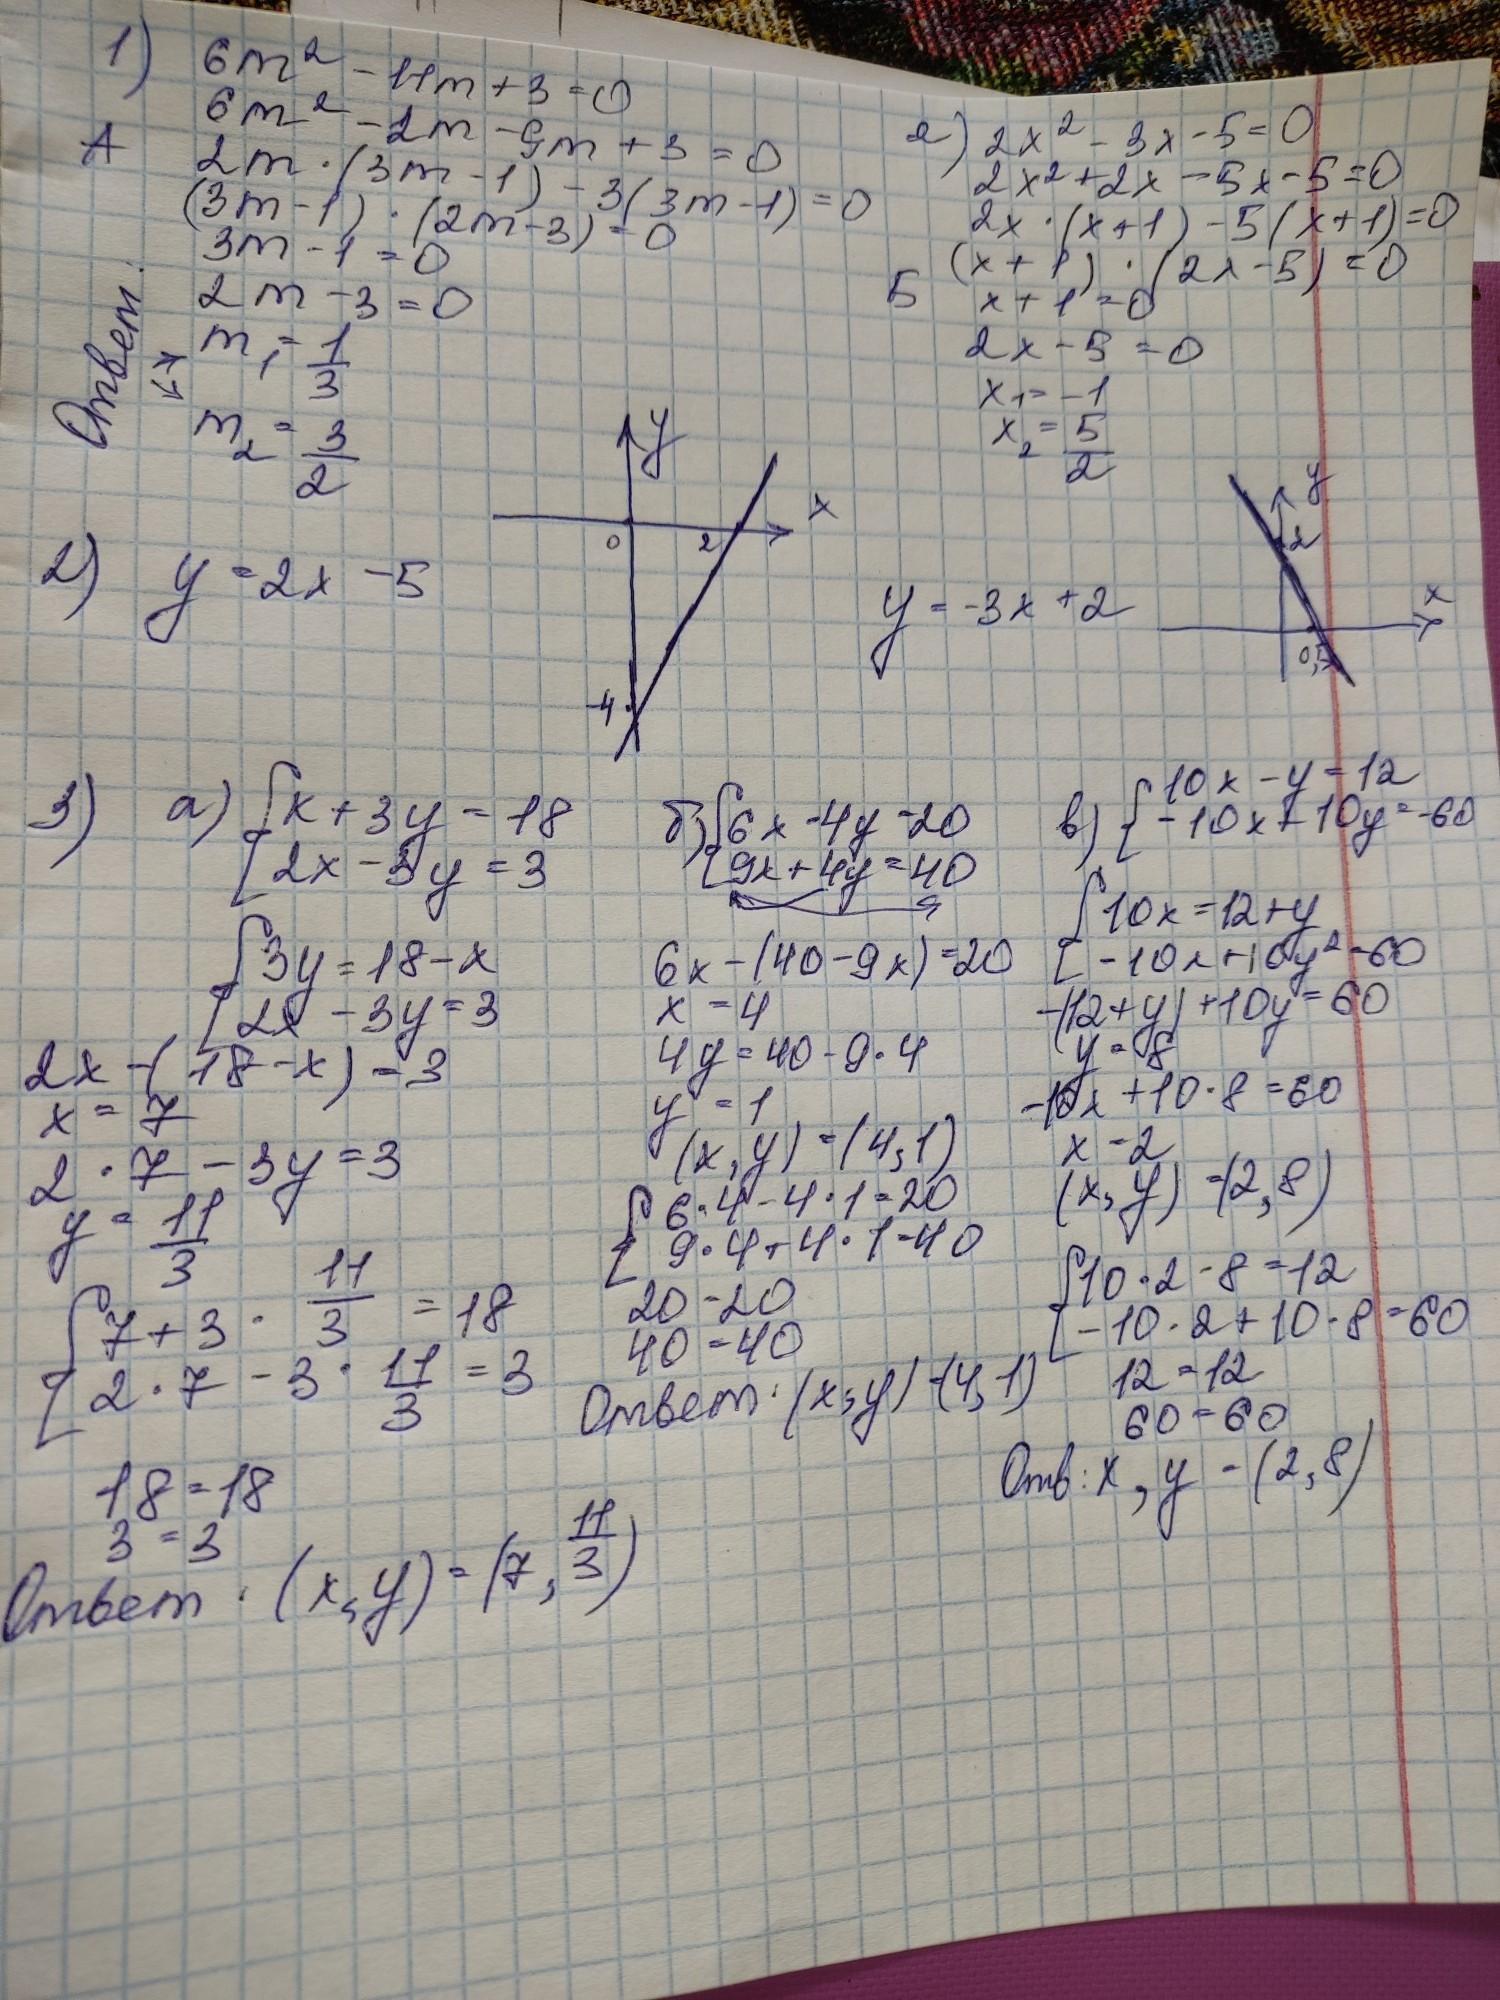 1) 6m² - 11m + 3 = 0
А 6m² - 2m - 9m + 3 = 0
2m · (3m - 1) - 3(3m - 1) = 0
(3m - 1) · (2m - 3) = 0
3m - 1 = 0
2m - 3 = 0
Ответ:
m₁ = 1/3
m₂ = 3/2
2) 2x² - 3x - 5 = 0
2x² + 2x - 5x - 5 = 0
2x · (x + 1) - 5(x + 1) = 0
(x + 1) · (2x - 5) = 0
Б x + 1 = 0
2x - 5 = 0
x₁ = -1
x₂ = 5/2
2) y = 2x - 5
y
x
0 2
-4
y = -3x + 2
y
2
x
0,5
3) а) { x + 3y = 18
2x - 3y = 3
{ 3y = 18 - x
2x - 3y = 3
2x - (18 - x) = 3
x = 7
2 · 7 - 3y = 3
y = 11/3
{ 7 + 3 · 11/3 = 18
2 · 7 - 3 · 11/3 = 3
18 = 18
3 = 3
Ответ: (x, y) = (7, 11/3)
б) { 6x - 4y = 20
9x + 4y = 40
6x - (40 - 9x) = 20
x = 4
4y = 40 - 9 · 4
y = 1
(x, y) = (4, 1)
{ 6 · 4 - 4 · 1 = 20
9 · 4 + 4 · 1 = 40
20 = 20
40 = 40
Ответ: (x, y) = (4, 1)
в) { 10x - y = 12
-10x + 10y = -60
{ 10x = 12 + y
-10x + 10y = -60
-(12 + y) + 10y = 60
y = 8
-10x + 10 · 8 = 60
x = 2
(x, y) = (2, 8)
{ 10 · 2 - 8 = 12
-10 · 2 + 10 · 8 = 60
12 = 12
60 = 60
Отв: x, y = (2, 8)